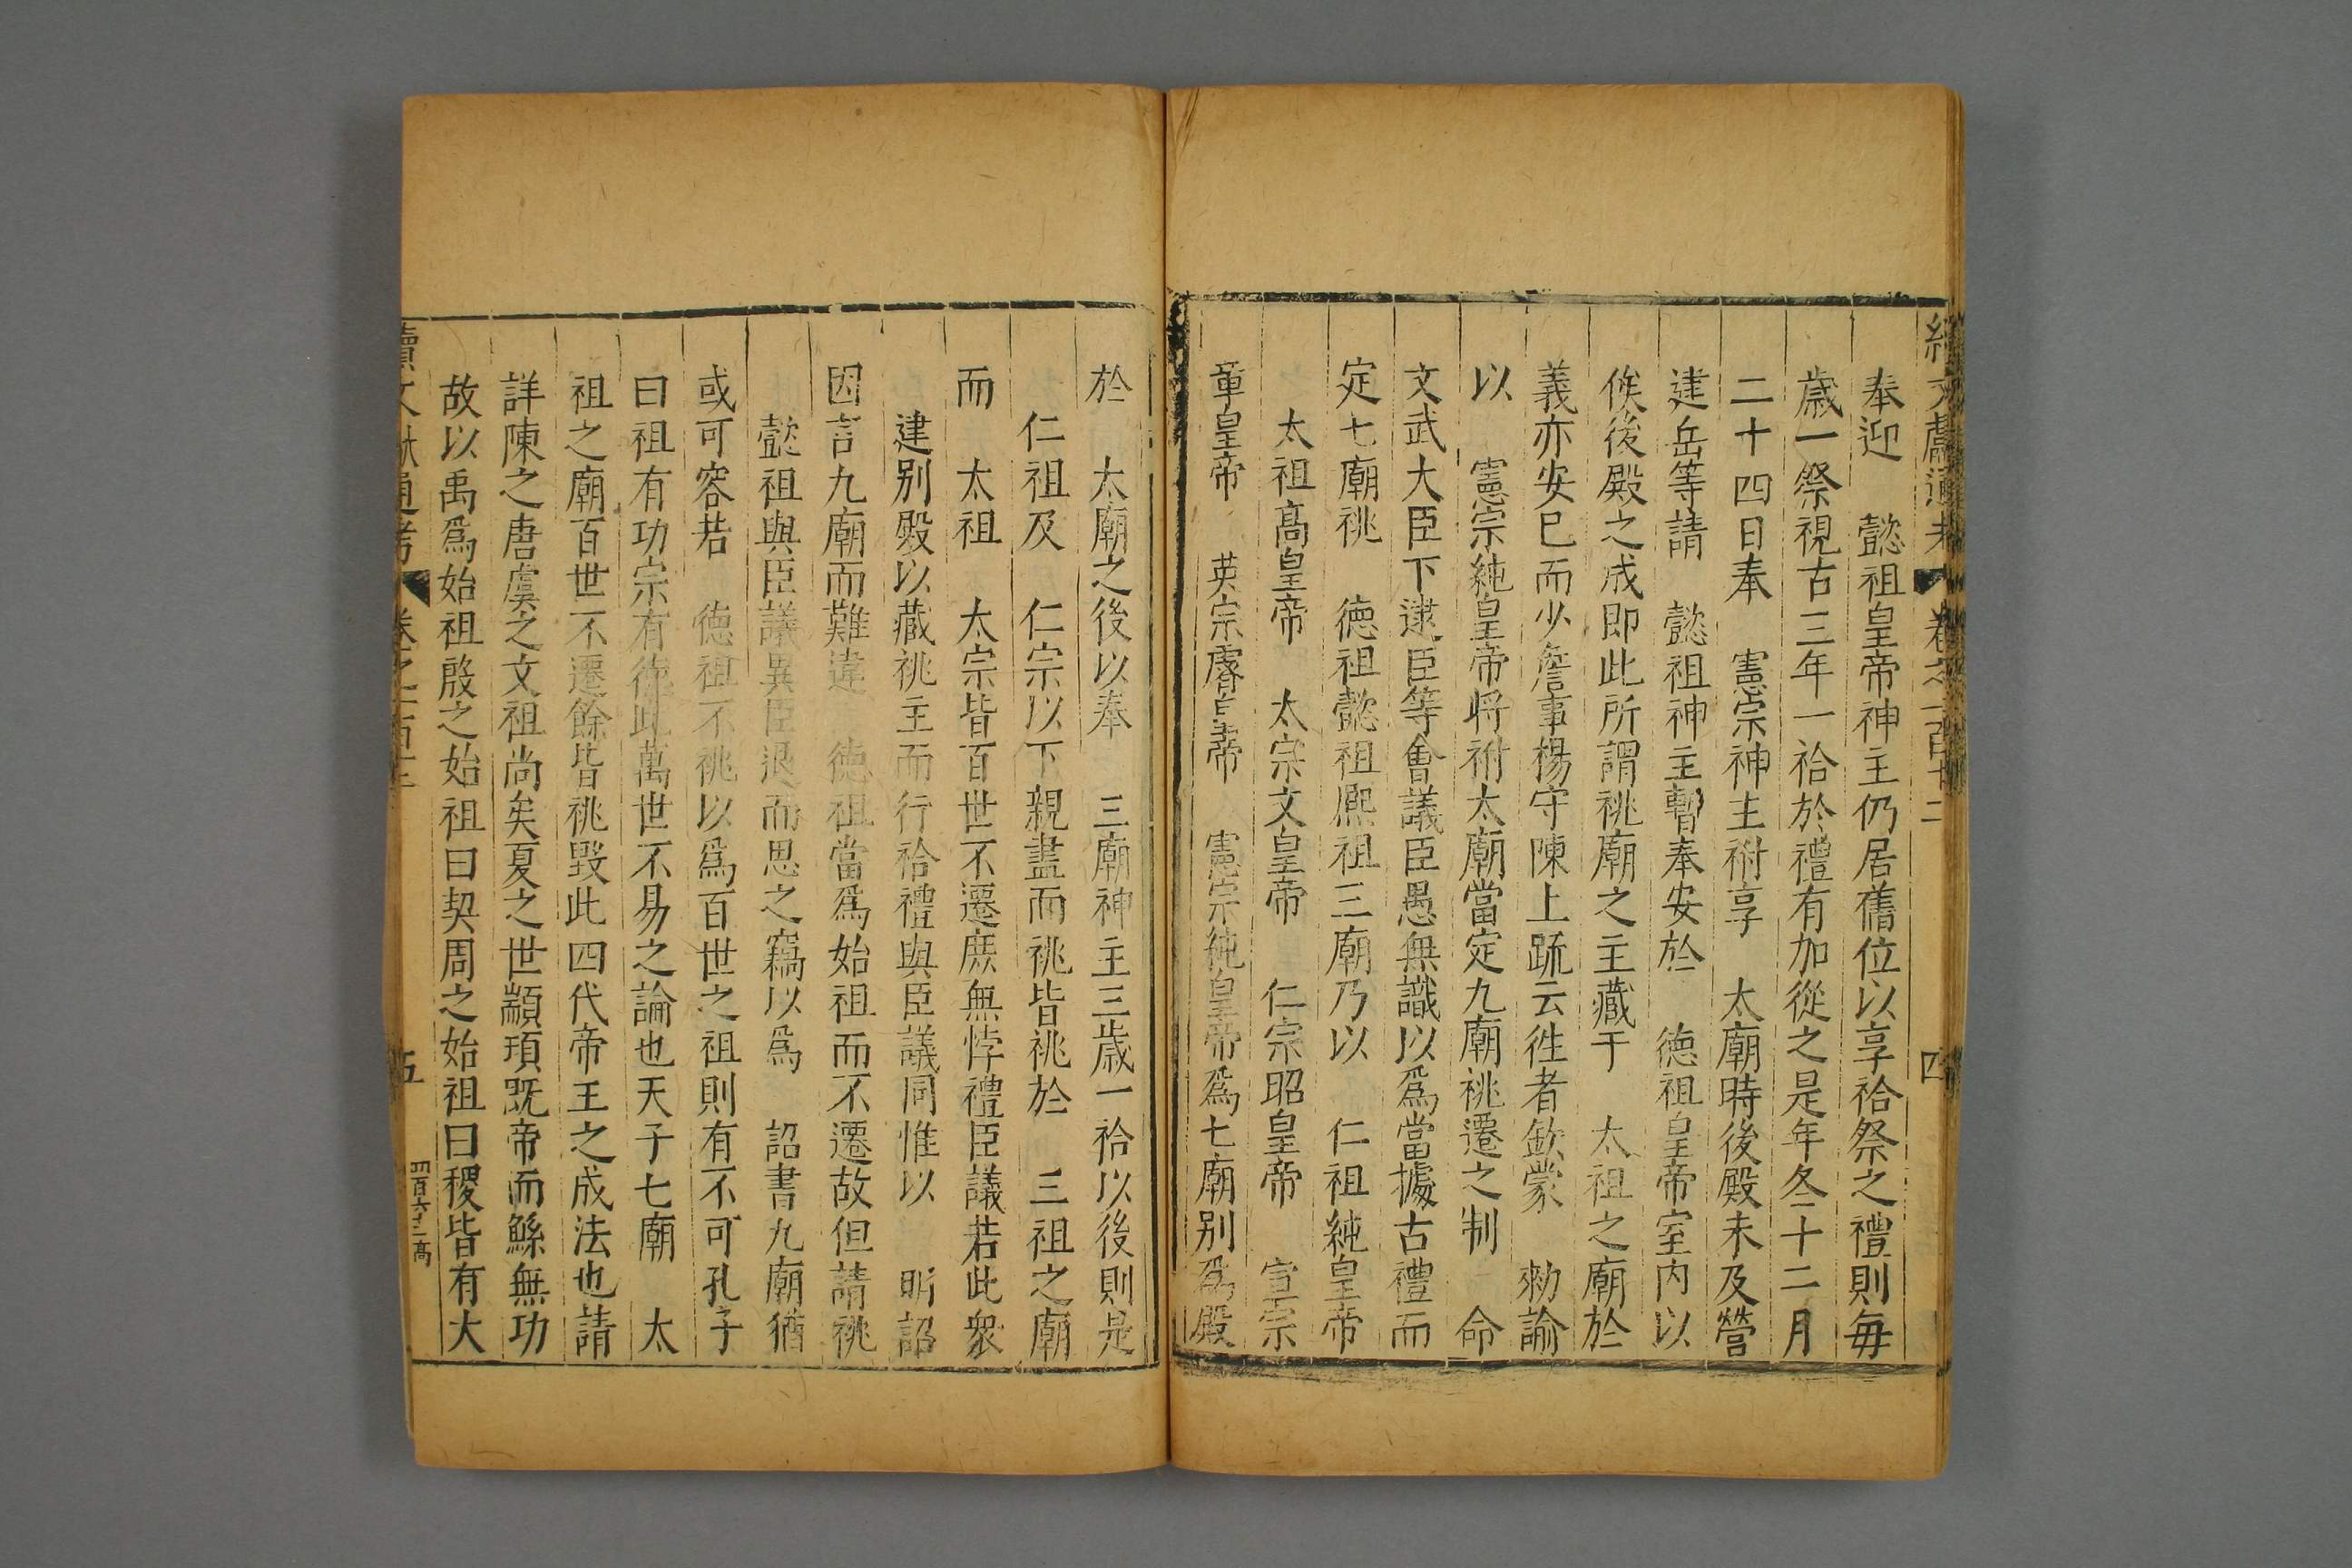 續文獻通考 卷之一百十二 四
奉迎 懿祖皇帝神主仍居舊位以享祫祭之禮則每
歲一祭視古三年一祫於禮有加從之是年冬十二月
二十四日奉 憲宗神主祔享 太廟時後殿未及營
建岳等請 懿祖神主暫奉安於 德祖皇帝室内以
俟後殿之成即此所謂祧廟之主藏于 太祖之廟於
義亦安巳而少詹事楊守陳上疏云徃者欽蒙 勑諭
以 憲宗純皇帝將祔太廟當定九廟祧遷之制 命
文武大臣下逮臣等會議臣愚無識以爲當據古禮而
定七廟祧 德祖懿祖熈祖三廟乃以 仁祖純皇帝
太祖髙皇帝 太宗文皇帝 仁宗昭皇帝 宣宗
章皇帝 英宗睿皇帝 憲宗純皇帝爲七廟别爲殿
於 太廟之後以奉 三廟神主三歲一祫以後則是
仁祖及 仁宗以下親盡而祧皆祧於 三祖之廟
而 太祖 太宗皆百世不遷庶無悖禮臣議若此衆
建别殿以藏祧主而行祫禮與臣議同惟以 明詔
因言九廟而難違 德祖當爲始祖而不遷故但請祧
懿祖與臣議異臣退而思之竊以爲 詔書九廟猶
或可容若 德祖不祧以爲百世之祖則有不可孔子
曰祖有功宗有德此萬世不易之論也天子七廟 太
祖之廟百世不遷餘皆祧毀此四代帝王之成法也請
詳陳之唐虞之文祖尚矣夏之世顓頊既帝而鯀無功
故以禹爲始祖殷之始祖曰契周之始祖曰稷皆有大
續文獻通考 卷之一百十二 五 四百六十二 高